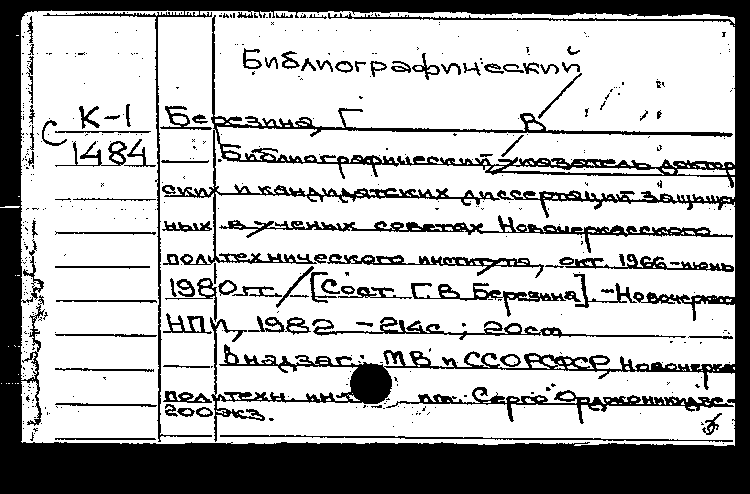 Библиографический
С К-1 Березина, Г В
1484 Библиографический указатель доктор
ских и кандидатских диссертаций защищен
ных в ученых советах Новочеркасского
политехнического института, окт. 1966-июнь
1980 гг. / [Сост. Г.В. Березина]. -Новочеркасс
НПИ, 1982 -214с ; 20см
Внадзаг.: МВ и ССО РСФСР, Новочерка
политехн. ин-т им. Серго Орджоникидзе-
200экз.